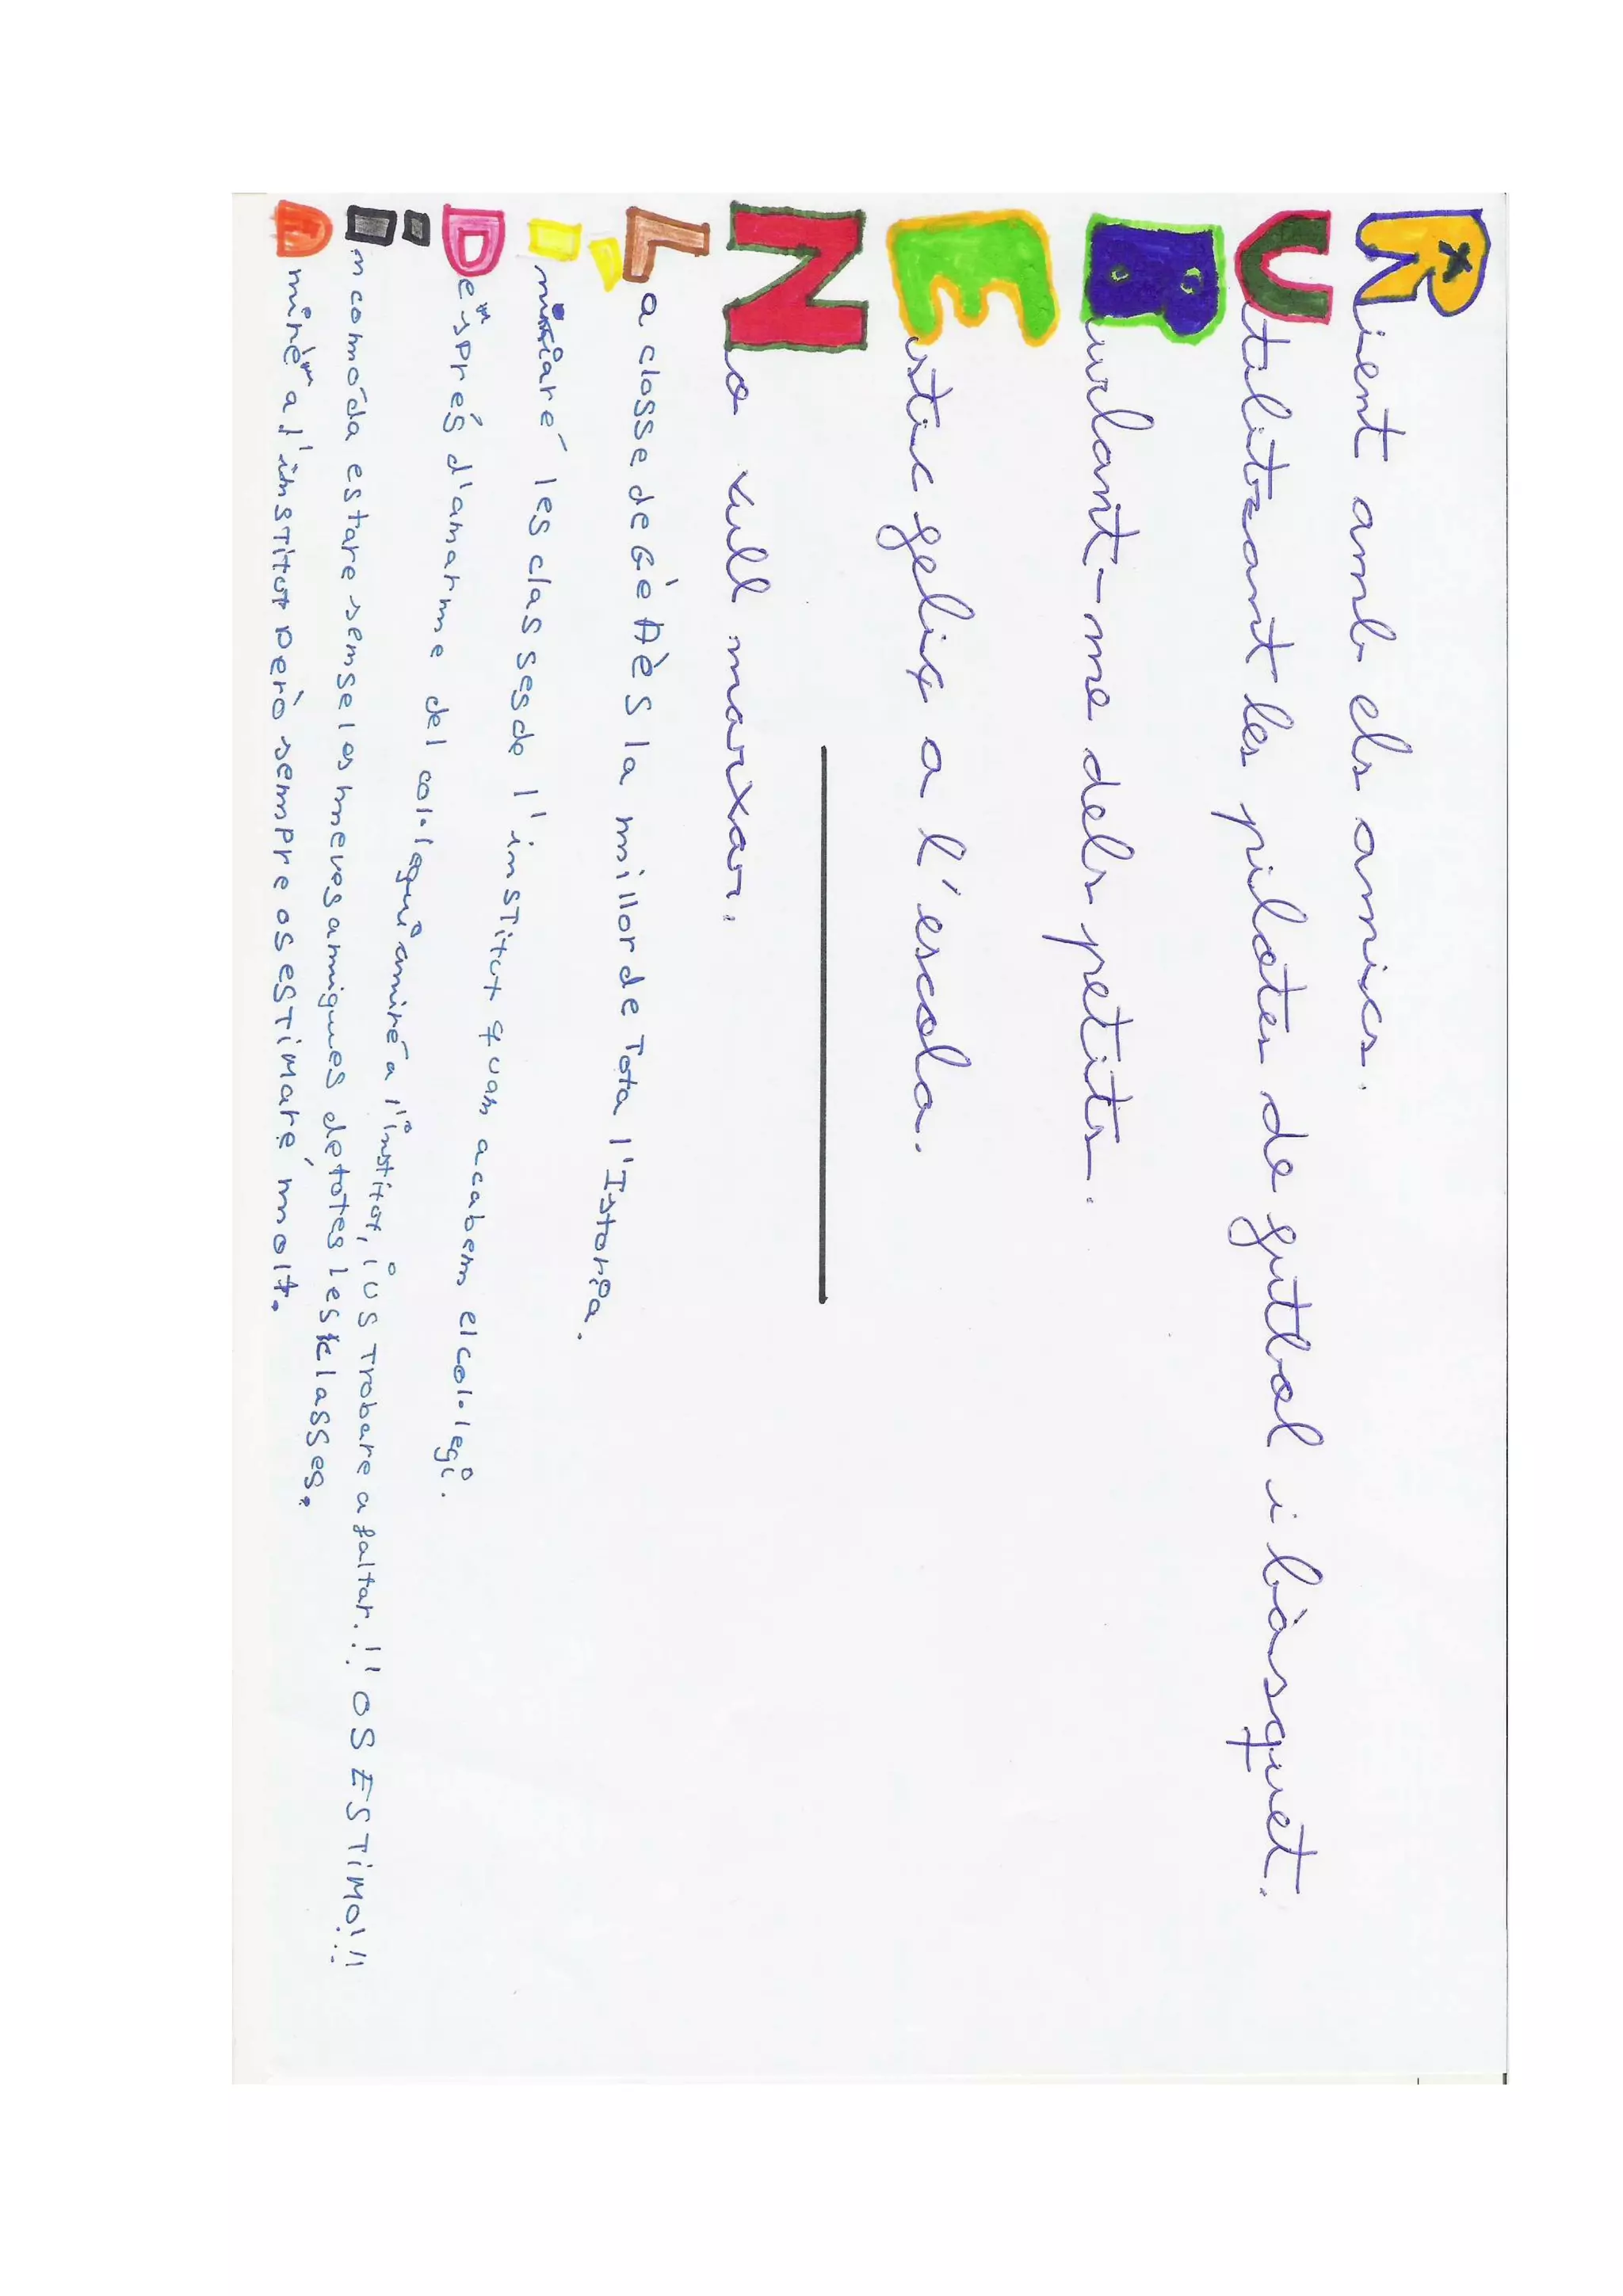 Rient amb els amics.
Utilitzant les pilotes de futbol i bàsquet.
Burlant-me dels petits.
Estic feliç a l'escola.
No vull marxar.
La classe de 6è A ès la millor de Tota l'Istoria.
iniciaré les classes de l'institut quan acabem el col·legi.
Després d'anarme del col·legui aniré a l'institut, i us trobare a faltar.!! OS ESTIMO!!!
incomoda estare sense las meves amigues de totes les classes.
Aniré a l'institut però sempre os estimaré molt.